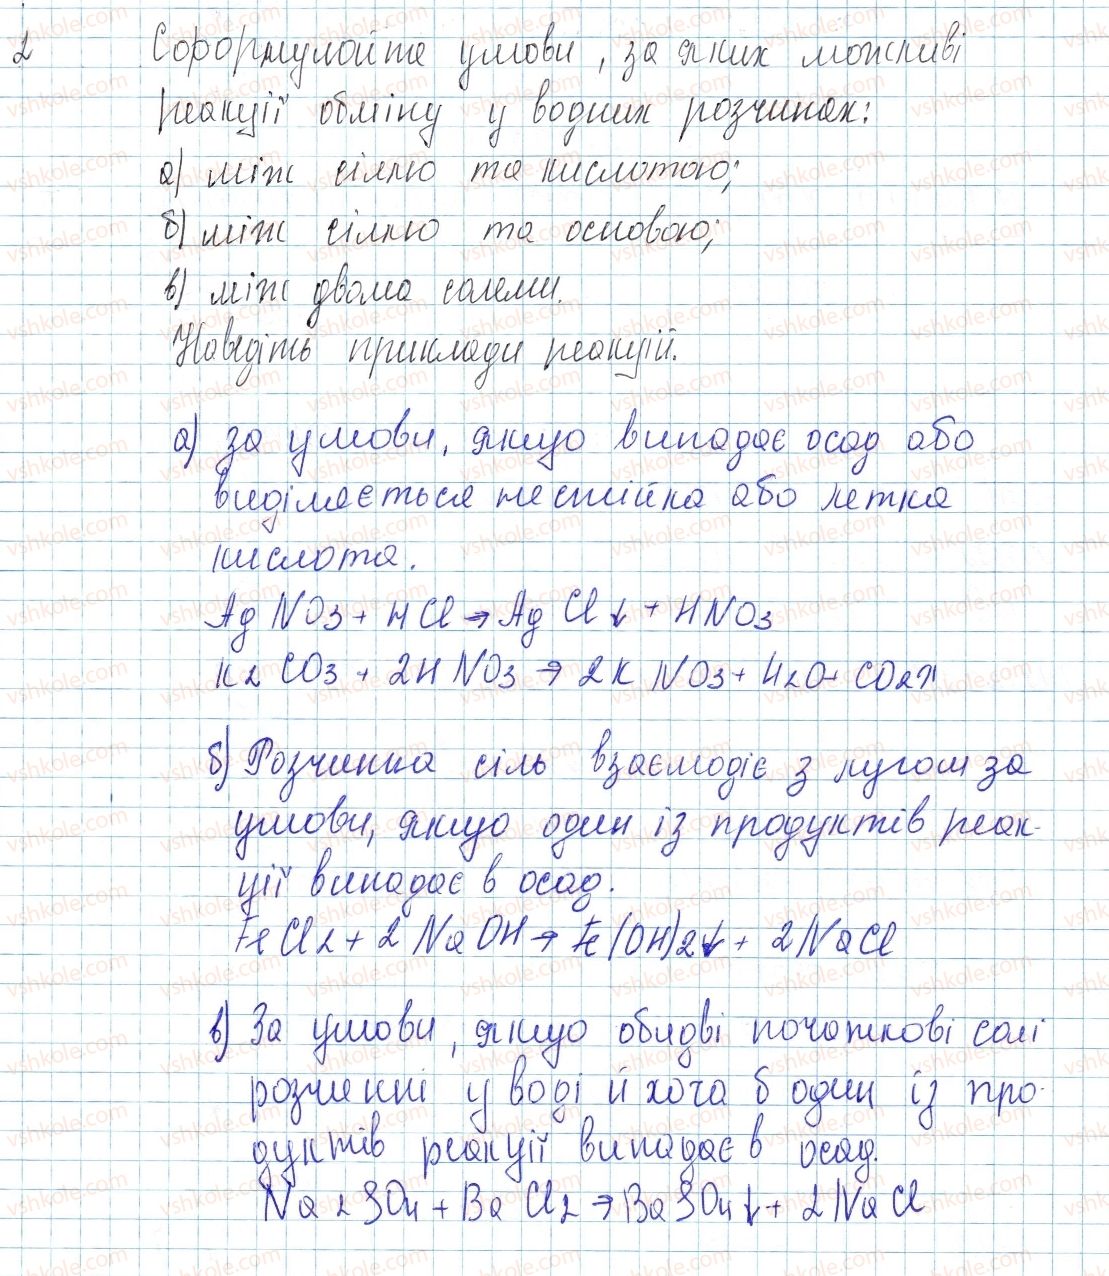 2 Сформулюйте умови, за яких можливі
реакції обміну у водних розчинах:
а) між сіллю та кислотою;
б) між сіллю та основою;
в) між двома солями.
Наведіть приклади реакцій.
а) за умови, якщо випадає осад або
виділяється нестійка або летка
кислота.
AgNO3 + HCl → AgCl↓ + HNO3
K2CO3 + 2HNO3 → 2KNO3 + H2O + CO2↗
б) Розчинна сіль взаємодіє з лугом за
умови, якщо один із продуктів реак-
ції випадає в осад.
FeCl2 + 2NaOH → Fe(OH)2↓ + 2NaCl
в) За умови, якщо обидві початкові солі
розчинні у воді й хоча б один із про-
дуктів реакції випадає в осад.
Na2SO4 + BaCl2 → BaSO4↓ + 2NaCl
vshkole.com